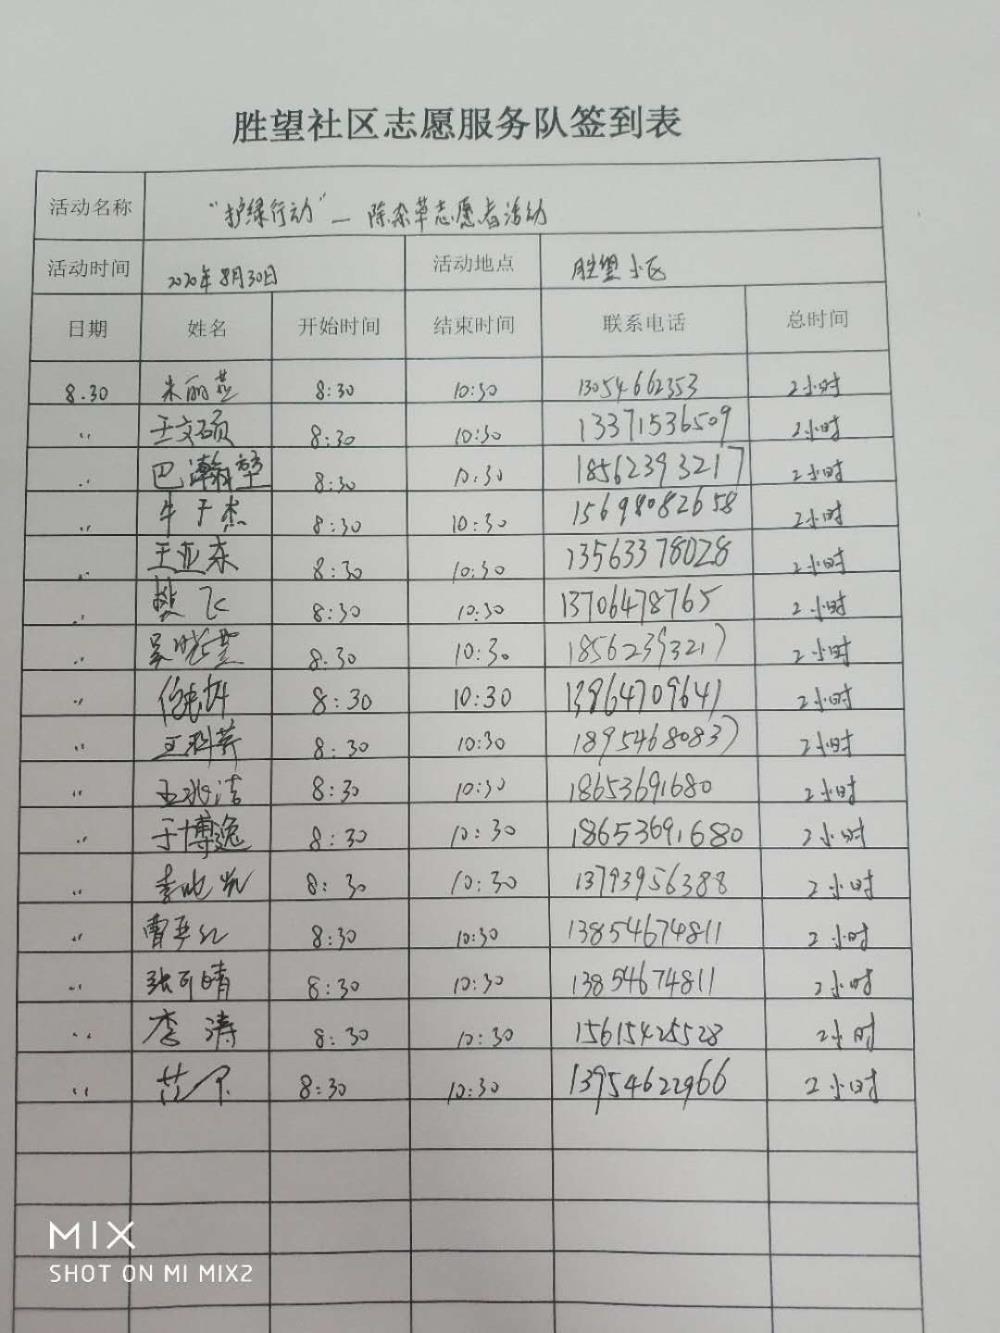 胜望社区志愿服务队签到表
活动名称 "护绿行动"—除杂草志愿者活动
活动时间 2020年8月30日 活动地点 胜望小区
日期 姓名 开始时间 结束时间 联系电话 总时间
8.30 朱丽燕 8:30 10:30 13054662353 2小时
" 王文硕 8:30 10:30 13371536509 2小时
" 巴瀚堃 8:30 10:30 18562393217 2小时
" 牛于杰 8:30 10:30 15698082658 2小时
" 王亚东 8:30 10:30 13563378028 2小时
" 樊飞 8:30 10:30 13706478765 2小时
" 吴晓燕 8.30 10:30 18562393217 2小时
" 8:30 10:30 13964709641 2小时
" 8:30 10:30 18954680837 2小时
" 王兆洁 8:30 10:30 18653691680 2小时
" 于博逸 8:30 10:30 18653691680 2小时
" 8:30 10:30 13793956388 2小时
" 8:30 10:30 13854674811 2小时
" 张可晴 8:30 10:30 13854674811 2小时
" 李涛 8:30 10:30 15615425528 2小时
" 8:30 10:30 13954622966 2小时
MIX
SHOT ON MI MIX2